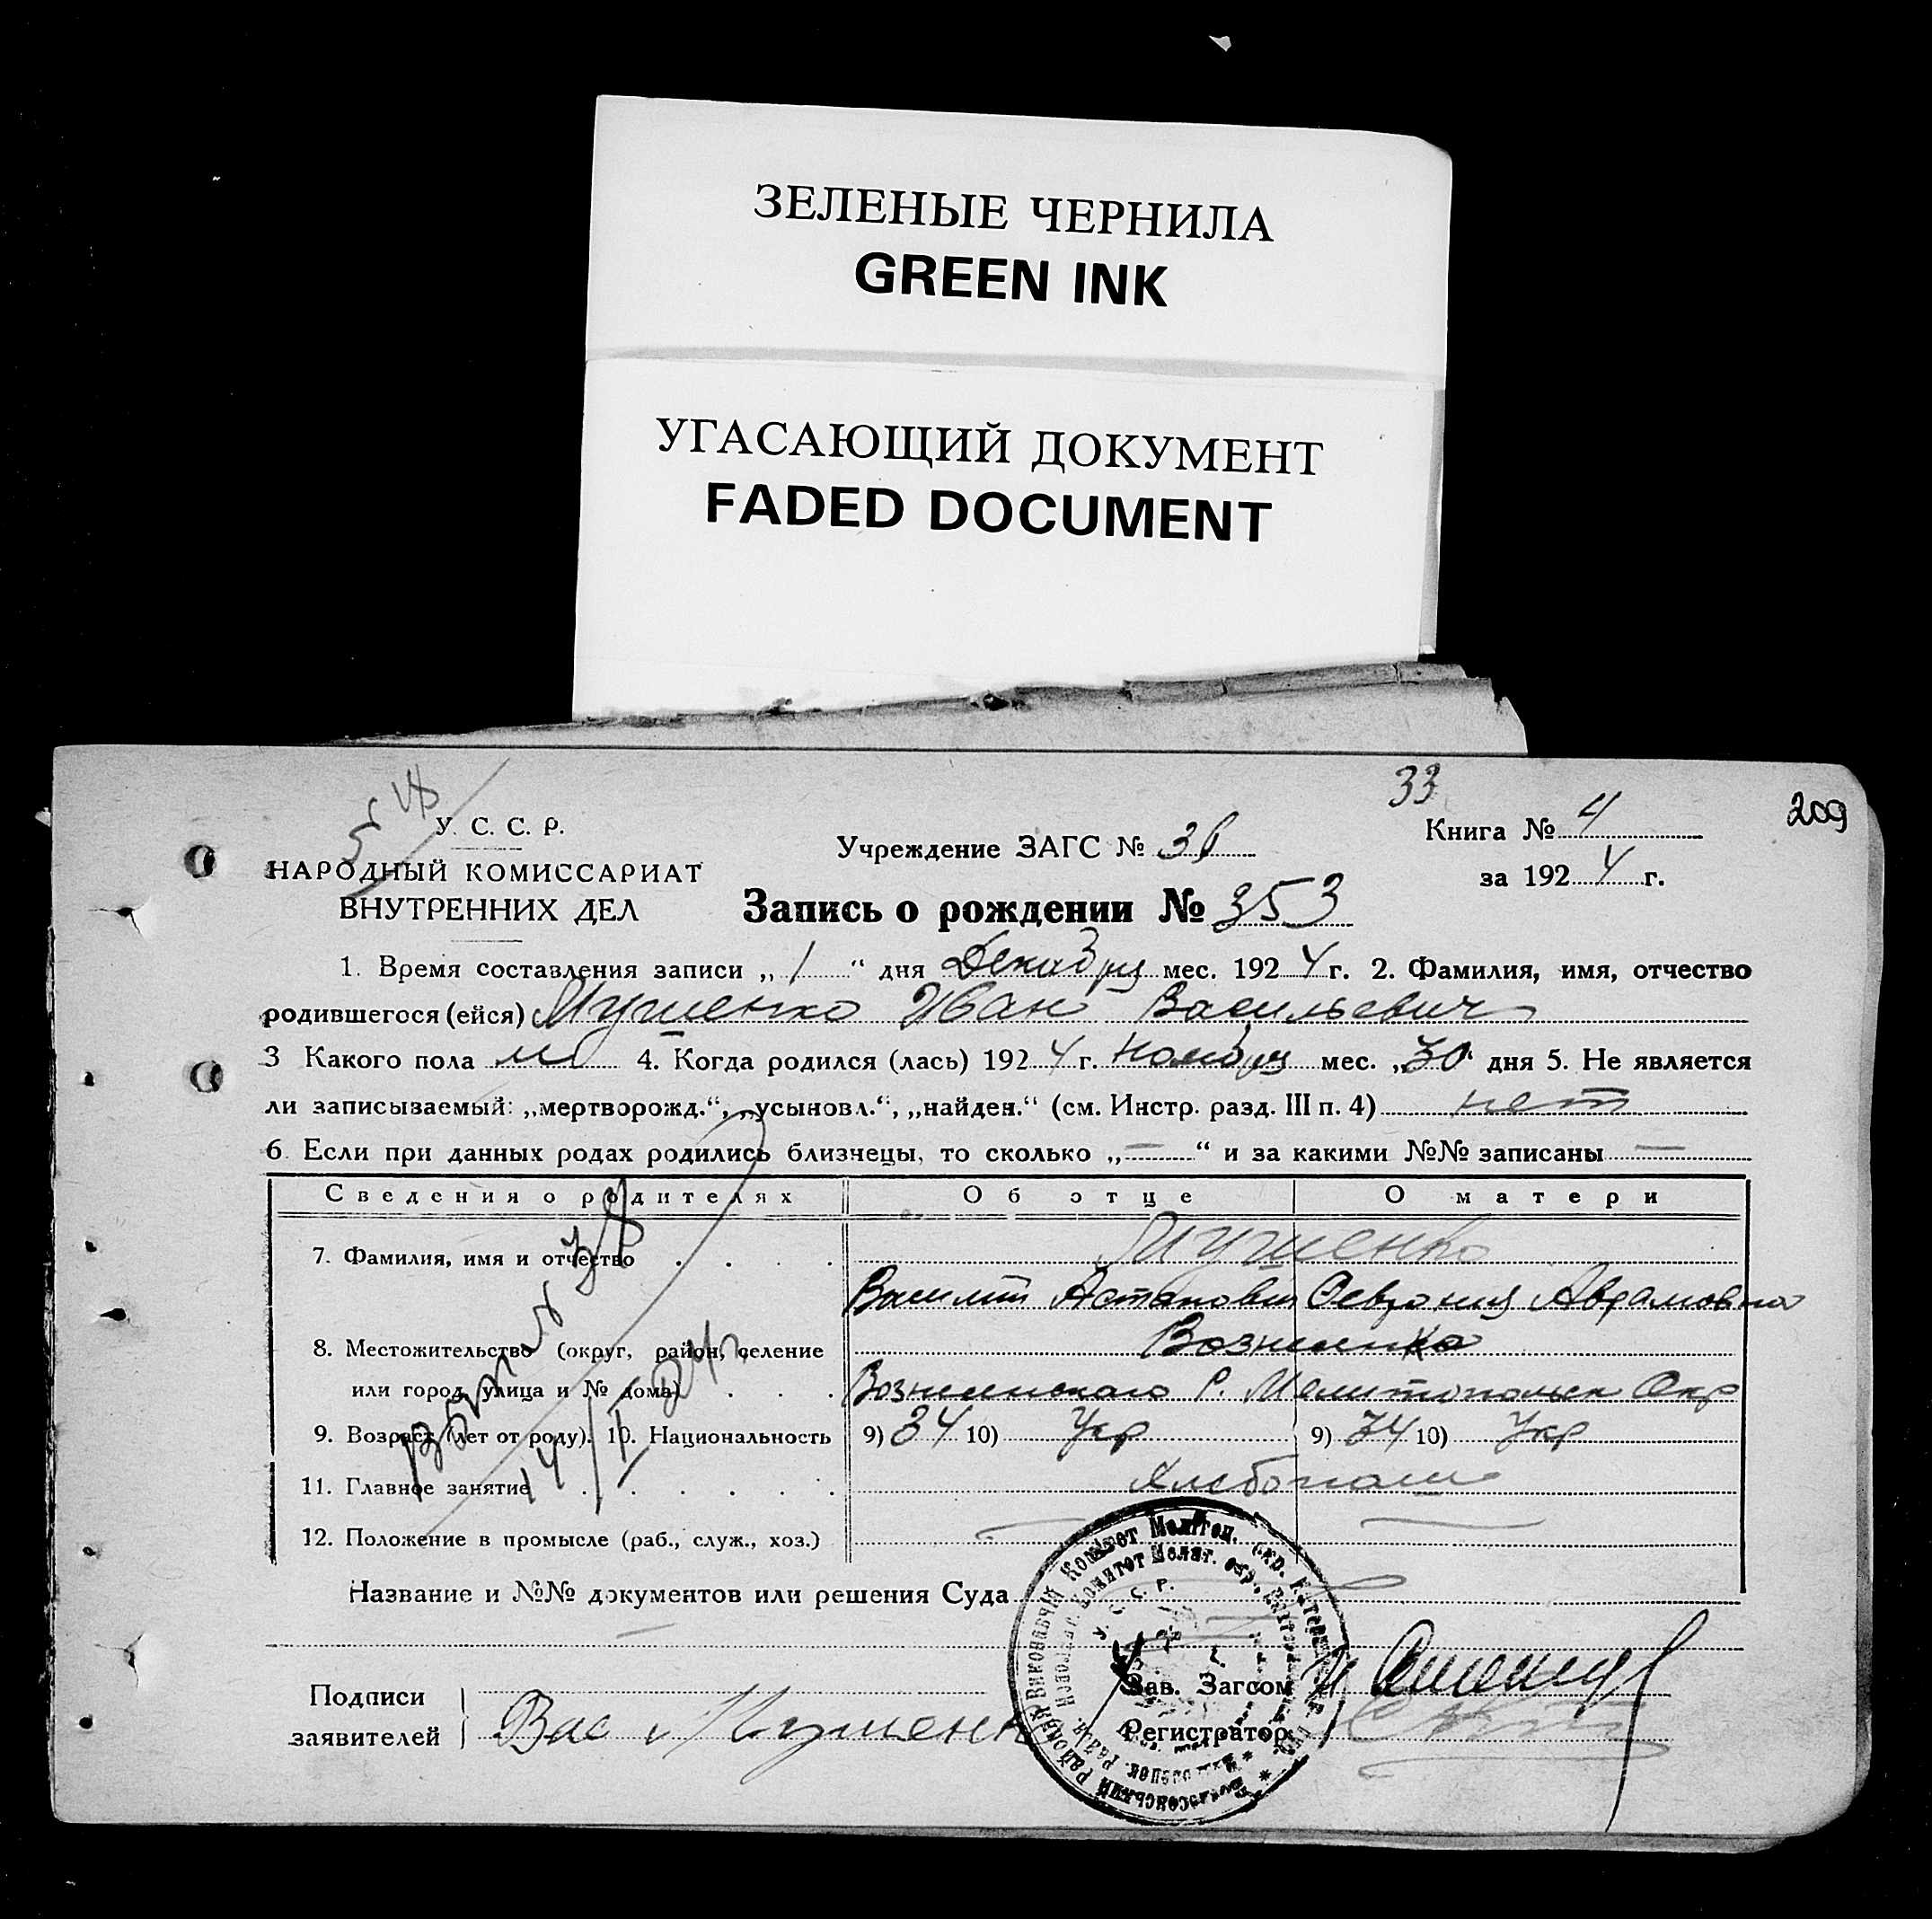 ЗЕЛЕНЫЕ ЧЕРНИЛА
GREEN INK
УГАСАЮЩИЙ ДОКУМЕНТ
FADED DOCUMENT
33
209
У. С. С. Р.
НАРОДНЫЙ КОМИССАРИАТ
ВНУТРЕННИХ ДЕЛ
Учреждение ЗАГС №
Книга № 4
за 1924 г.
Запись о рождении № 353
1. Время составления записи „1“ дня Декабря мес. 1924 г. 2. Фамилия, имя, отчество
родившегося (ейся) Иван Васильевич
3 Какого пола м 4. Когда родился (лась) 1924 г. Ноября мес. „30“ дня 5. Не является
ли записываемый: „мертворожд.“, „усыновл.“, „найден.“ (см. Инстр. разд. III п. 4) нет
6. Если при данных родах родились близнецы, то сколько „—“ и за какими №№ записаны —
Сведения о родителях Об отце О матери
7. Фамилия, имя и отчество
Василий Аврамовна
8. Местожительство (округ, район, селение
или город, улица и № дома) Р. Мелитопольск Окр
9. Возраст (лет от роду). 10. Национальность 9) 34 10) Укр 9) 34 10) Укр
11. Главное занятие Хлебопаш
12. Положение в промысле (раб., служ., хоз.) — —
Название и №№ документов или решения Суда
Подписи
заявителей
Вас
Зав. Загсом
Регистратор
У. С. С. Р.